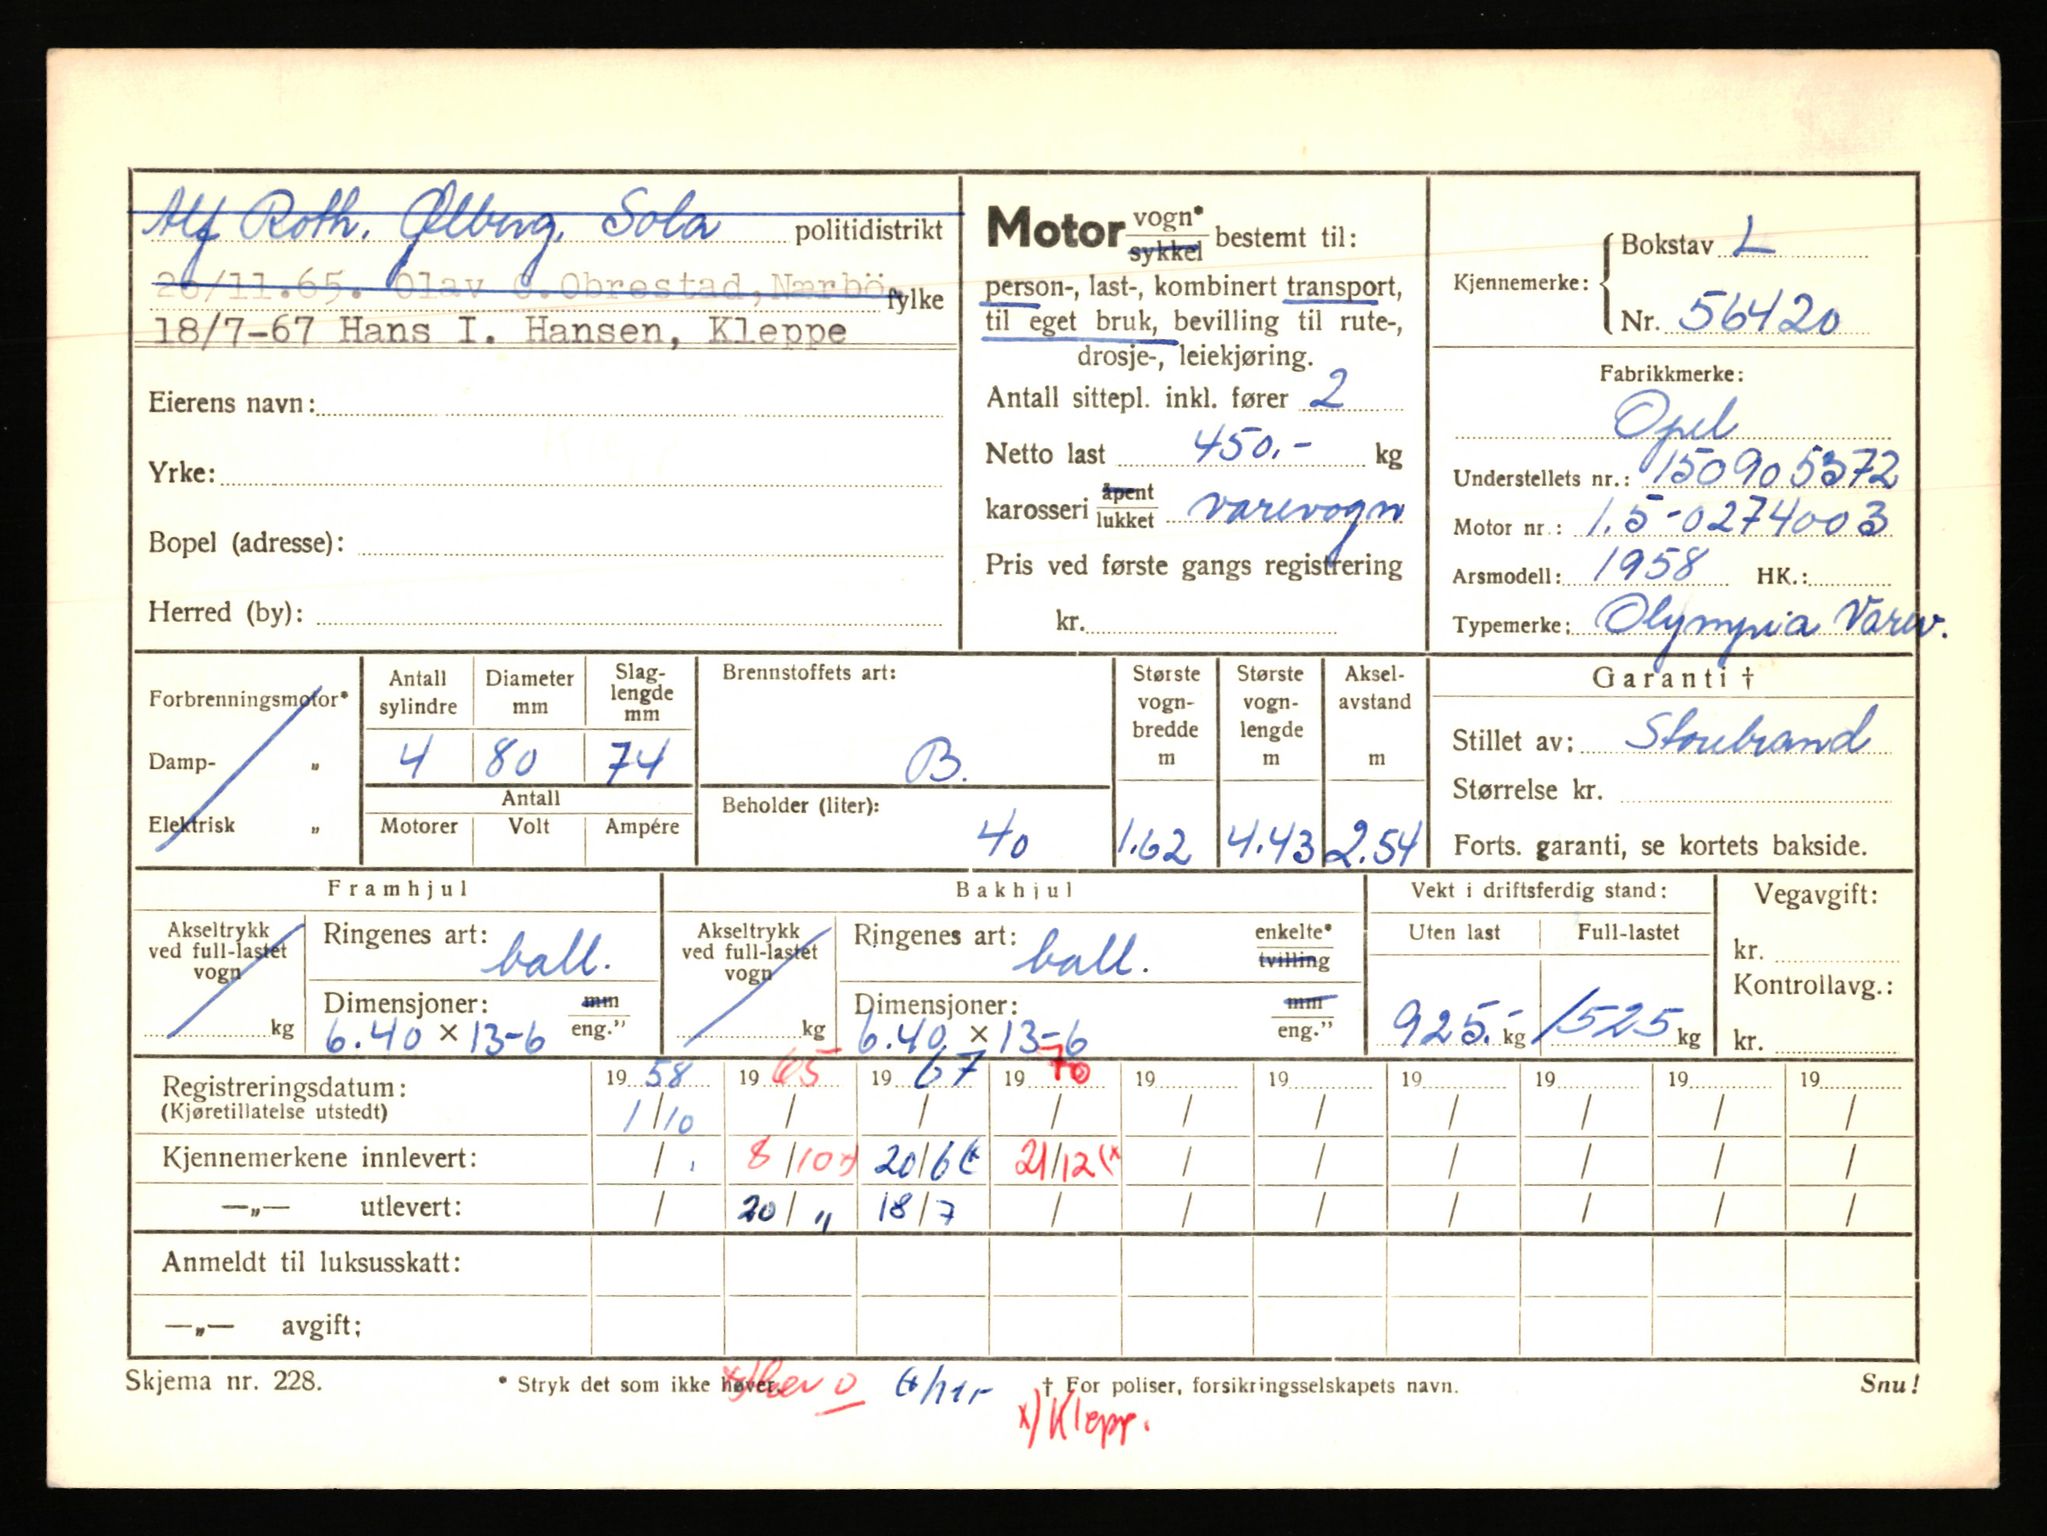 Alf Roth, Ølberg, Sola politidistrikt
20/11.65. Olav O.Obrestad, Nærbö fylke
18/7-67 Hans I. Hansen, Kleppe
Eierens navn:
Yrke:
Bopel (adresse):
Herred (by):
Motor vogn* sykkel bestemt til:
person-, last-, kombinert transport,
til eget bruk, bevilling til rute-,
drosje-, leiekjøring.
Antall sittepl. inkl. fører 2
Netto last 450.- kg
karosseri åpent lukket varevogn
Pris ved første gangs registrering
kr.
Kjennemerke: Bokstav L
Nr. 56420
Fabrikkmerke:
Opel
Understellets nr.: 150905372
Motor nr.: 1.5-0274003
Arsmodell: 1958 HK.:
Typemerke: Olympia Varev.
Forbrenningsmotor*
Damp- „
Elektrisk „
Antall sylindre Diameter mm Slag-lengde mm
4 80 74
Antall
Motorer Volt Ampére
Brennstoffets art:
B.
Beholder (liter):
40
Største vogn-bredde m Største vogn-lengde m Aksel-avstand m
1.62 4.43 2.54
Garanti †
Stillet av: Storebrand
Størrelse kr.
Forts. garanti, se kortets bakside.
Framhjul
Akseltrykk ved full-lastet vogn kg
Ringenes art: ball.
Dimensjoner: mm
6.40 × 13-6 eng."
Bakhjul
Akseltrykk ved full-lastet vogn kg
Ringenes art: ball. enkelte* tvilling
Dimensjoner: mm
6.40 × 13-6 eng."
Vekt i driftsferdig stand:
Uten last Full-lastet
925.- kg 1525 kg
Vegavgift:
kr.
Kontrollavg.:
kr.
Registreringsdatum: 19 58 19 65 19 67 19 70 19 19 19 19 19 19
(Kjøretillatelse utstedt) 1/10 / / / / / / / / /
Kjennemerkene innlevert: / 8/10 x) 20/6 (x 21/12 (x / / / / / /
—„— utlevert: / 20/„ 18/7 / / / / / / /
Anmeldt til luksusskatt:
—„— avgift;
Skjema nr. 228. * Stryk det som ikke høver. † For poliser, forsikringsselskapets navn. Snu!
x) Klepp.